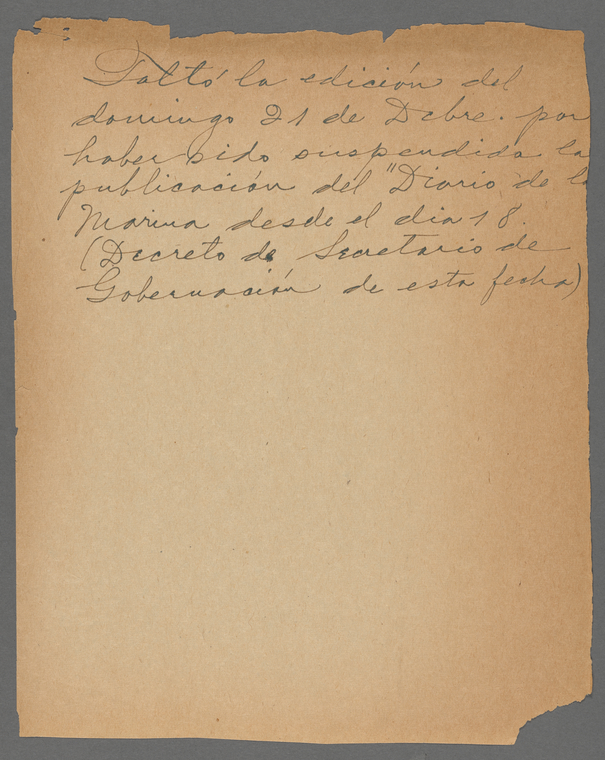 Faltó la edición del
domingo 21 de Dcbre. por
haber sido suspendida la
publicación del "Diario de la
Marina desde el dia 18.
(Decreto de Secretario de
Gobernación de esta fecha)